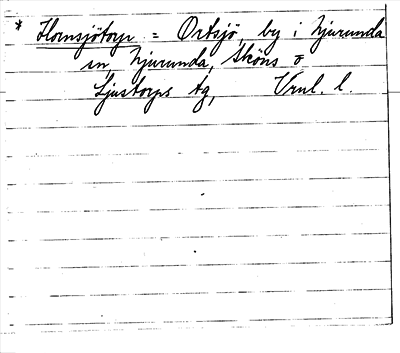 * Hornsjötorp = Ortsjö, by i Njurunda
sn, Njurunda, Sköns o
Ljustorps tg, Vnl. l.